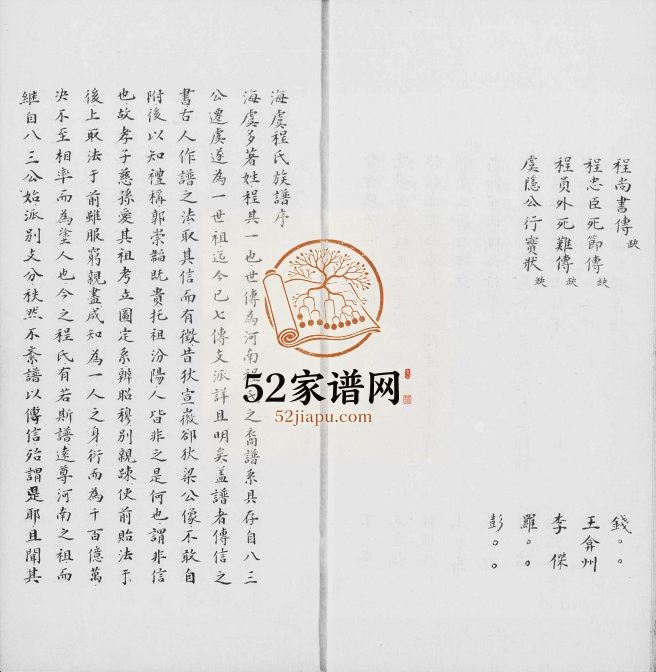 程尚書傳 缺
程忠臣死節傳 缺
程員外死難傳 缺
虞隱公行實狀 缺
錢。。
王弇州
李傑
羅。。
彭。。
海虞程氏族譜序
海虞多著姓程其一也世傳為河南程氏之裔譜系具存自八三
公遷虞遂為一世祖迄今已七傳支派詳且明矣蓋譜者傳信之
書古人作譜之法取其信而有徵昔狄宣徽卻狄梁公像不敢自
附後以知禮稱郭崇韜既貴托祖汾陽人皆非之是何也謂非信
也故孝子慈孫愛其祖考立圖定系辨昭穆別親疎使前貽法于
後上取法于前雖服窮親盡咸知為一人之身衍而為千百億萬
決不至相率而為塗人也今之程氏有若斯譜遠尊河南之祖而
繼自八三公始派別支分秩然不紊譜以傳信殆謂是耶且聞其
52家谱网
52jiapu.com